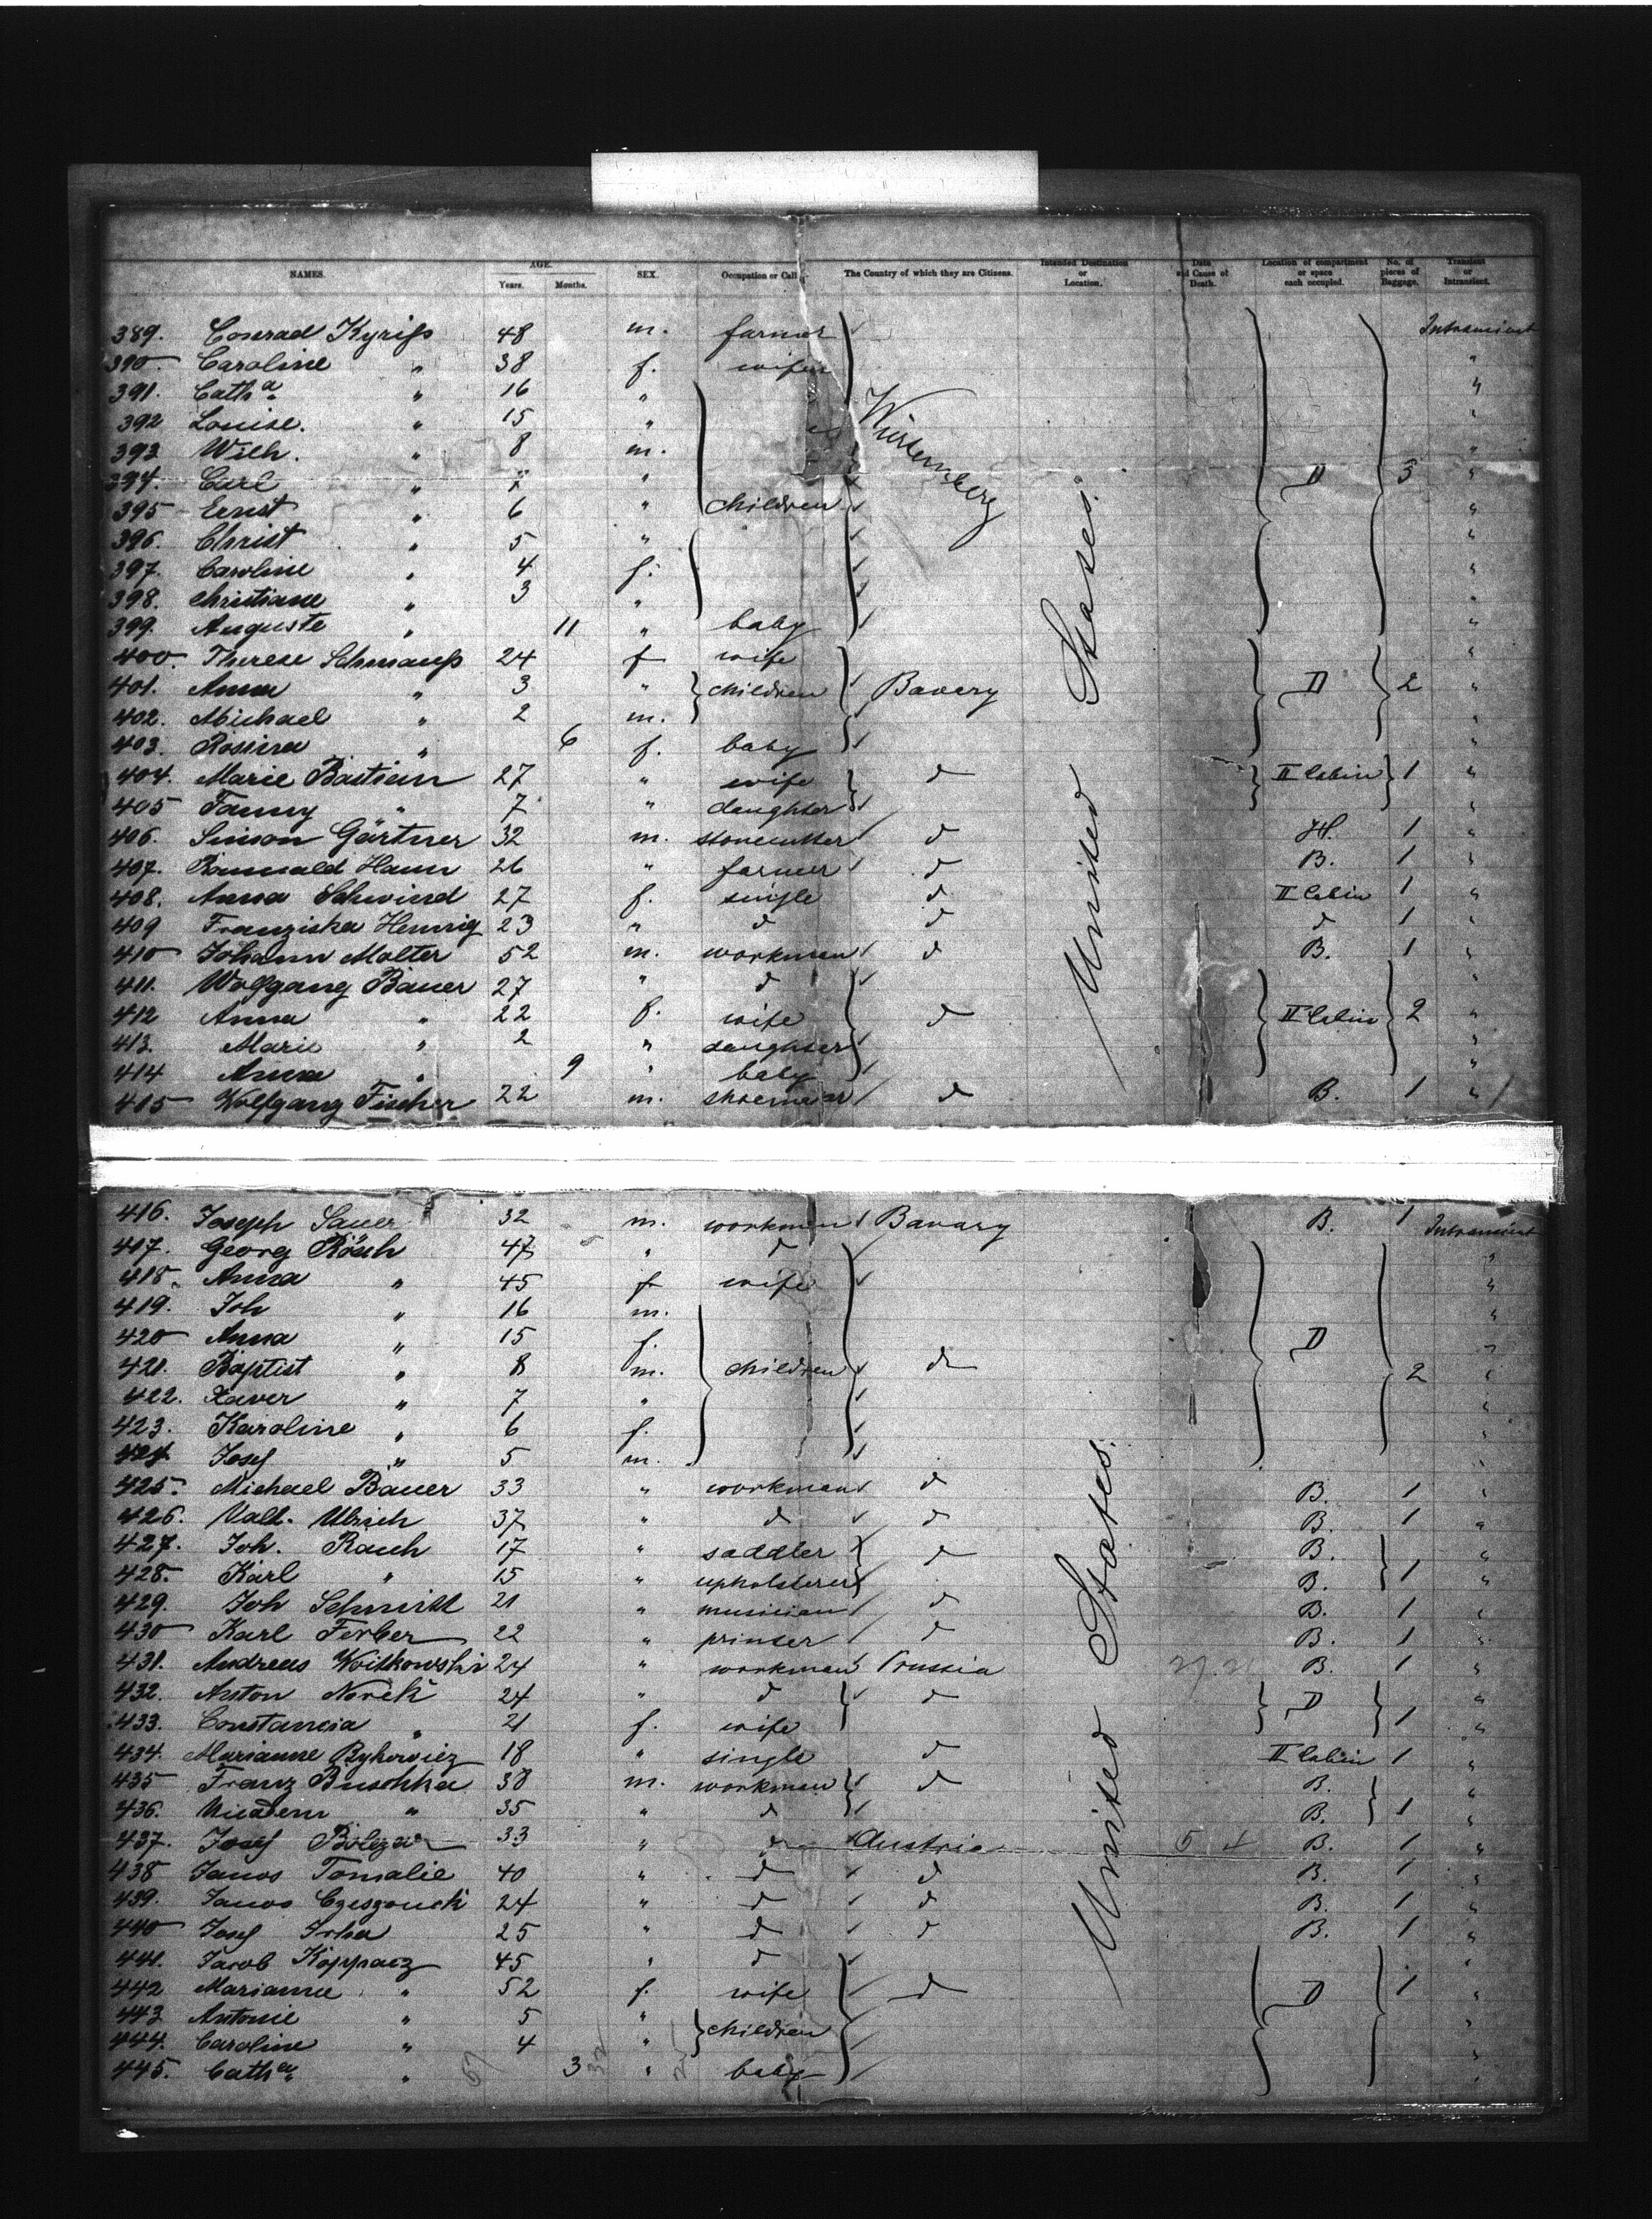 NAMES. AGE. Years. Months. SEX. Occupation or Calling The Country of which they are Citizens. Intended Destination or Location. Date and Cause of Death. Location of compartment or space each occupied. No. of pieces of Baggage. Transient or Intransient.
389. Conrad Kyriss 48 m. farmer Intransient
390 Caroline " 38 f. wife "
391. Catha " 16 " "
392 Louise. " 15 " Würtemberg "
393 Wilh. " 8 m. "
394. Carl " 7 " D 3 "
395 Ernst " 6 " children "
396. Christ " 5 " "
397. Caroline " 4 f. "
398. Christiane " 3 " "
399. Auguste " 11 " baby "
400. Therese Schmauss 24 f wife "
401. Anna " 3 " children Bavary D 2 "
402. Michael " 2 m. "
403. Rosina " 6 f. baby "
404. Marie Bastian 27 " wife d II Cabin 1 "
405 Fanny " 7 " daughter "
406. Simon Gärtner 32 m. stonecutter d H. 1 "
407. Romuald Hann 26 " farmer d B. 1 "
408. Anna Schwind 27 f. single d II Cabin 1 "
409 Franziska Hennig 23 " d d d 1 "
410 Johann Molter 52 m. workman d B. 1 "
411. Wolfgang Bauer 27 " d "
412 Anna " 22 f. wife d II Cabin 2 "
413. Marie " 2 " daughter "
414 Anna " 9 " baby "
415 Wolfgang Fischer 22 m. d B. 1 "
United States.
416. Joseph Sauer 32 m. workman Bavary B. 1 Intransient
417. Georg Rösch 47 " d "
418. Anna " 45 f wife "
419. Joh " 16 m. "
420 Anna " 15 f. D "
421. Baptist " 8 m. children d 2 "
422. Xaver " 7 " "
423. Karoline " 6 f. "
424 Josef " 5 m. "
425. Michael Bauer 33 " workman d B. 1 "
426. Vald. Ulrich 37 " d d B. 1 "
427. Joh. Rauh 17 " saddler d B. "
428. Karl " 15 " upholsterer B. 1 "
429. Joh Schmitt 21 " musician d B. 1 "
430 Karl Ferber 22 " printer d B. 1 "
431. Andreas Woitkowski 24 " workman Prussia B. 1 "
432. Anton Norek 24 " d d D "
433. Constancia " 21 f. wife 1 "
434. Marianne Rykowicz 18 " single d II Cabin 1 "
435 Franz Buschka 38 m. workman d B. "
436. " 35 " d B. 1 "
437. Josef 33 " d Austria B. 1 "
438 Janos Tomalie 40 " d d B. 1 "
439. Janos 24 " d d B. 1 "
440 Josef Irha 25 " d d B. 1 "
441. Jacob Koppacz 45 " d "
442 Marianne " 52 f. wife d D 1 "
443 Antonie " 5 " children "
444. Caroline " 4 " "
445. Catha " 3 " baby "
United States.